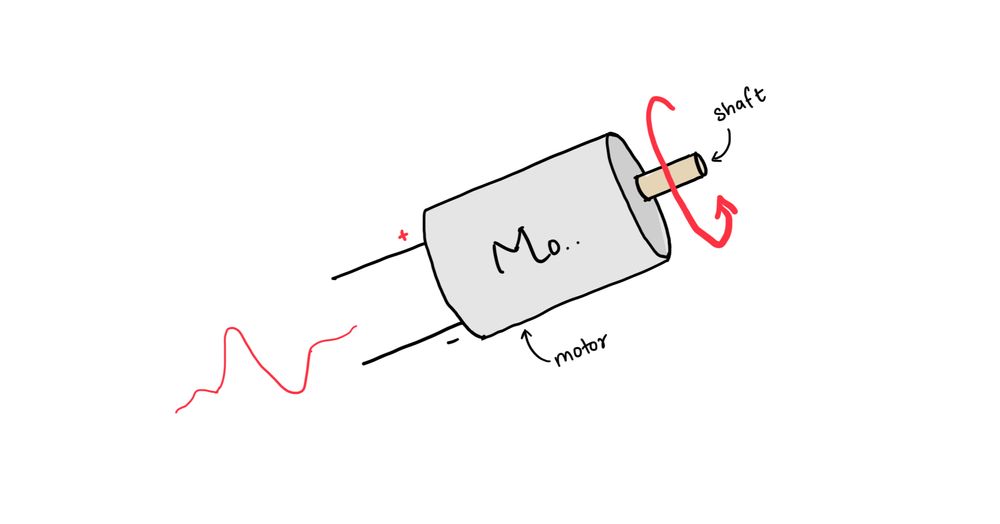 shaft
+
Mo..
-
motor